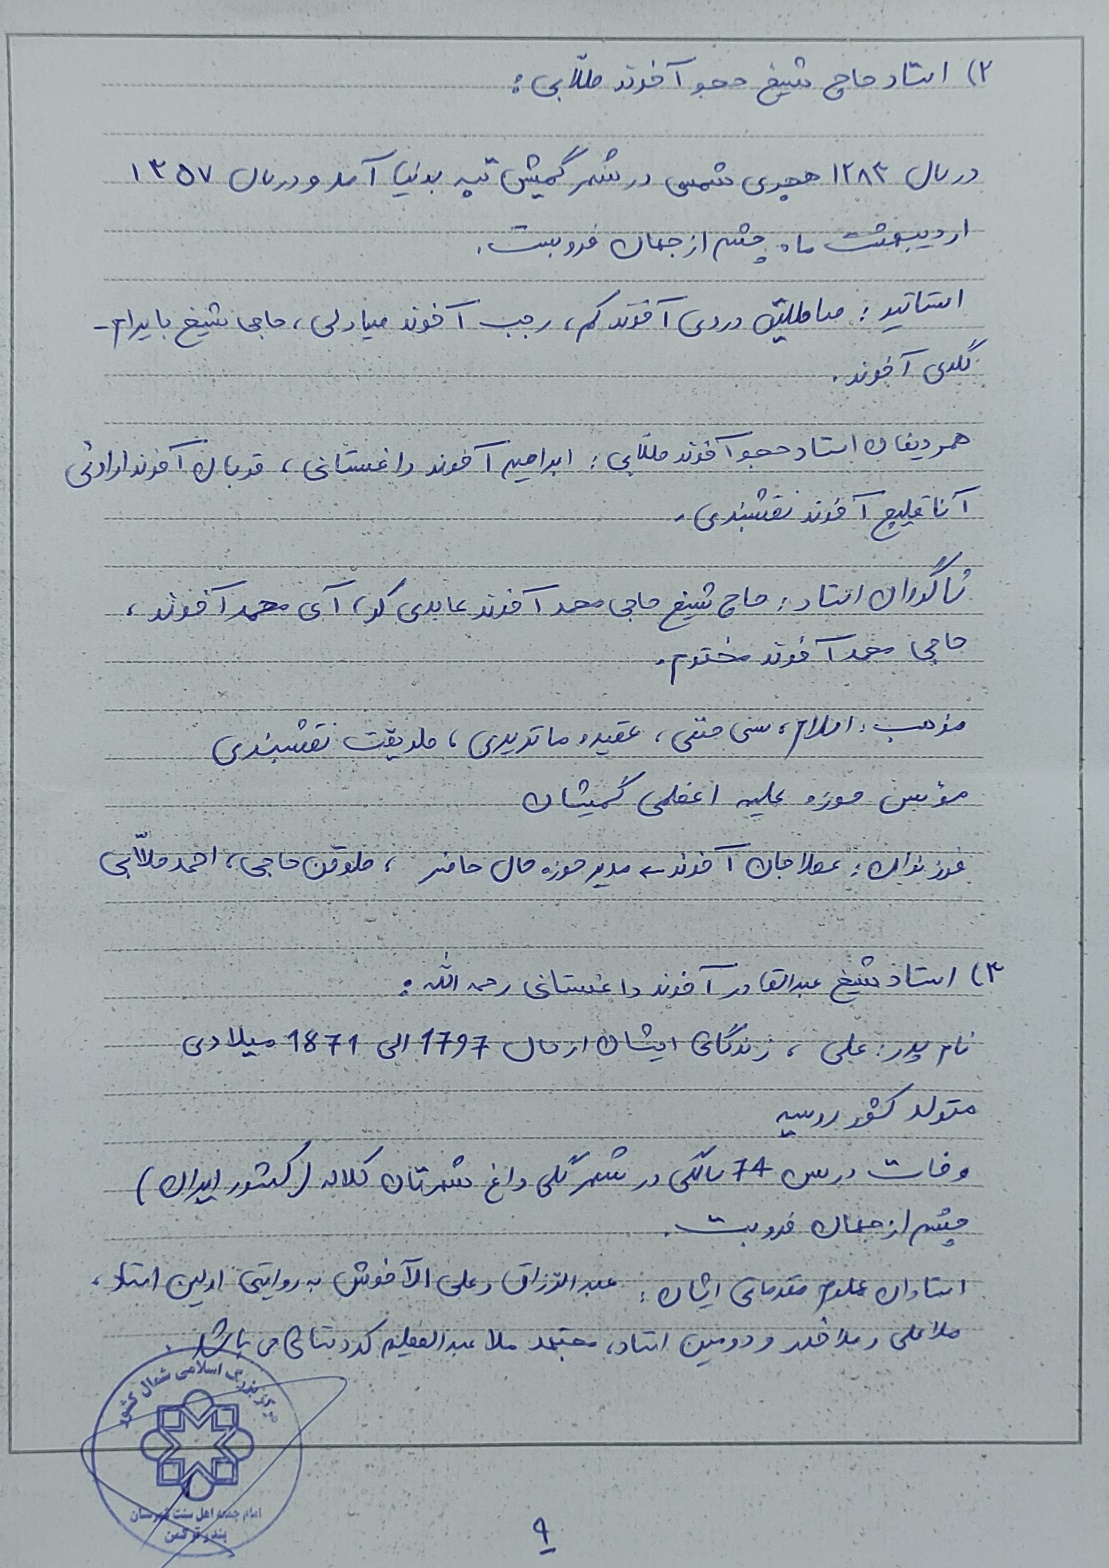 ۲) استاد حاج شیخ حجو آخوند ملّابی :
در سال ۱۲۸۳ هجری شمسی در شهر گمیش تپه بدنیا آمد و در سال ۱۳۵۷
اردیبهشت ماه چشم از جهان فروبست.
اساتید : دردی آخوند کم، رجب آخوند صیادلی، حاجی شیخ بایرام-
گلدی آخوند.
هم ردیفان استاد حجو آخوند ملّابی : ابراهیم آخوند داغستانی، قربان آخوند ارادتی
آناقلیچ آخوند نقشبندی.
شاگردان استاد : حاج شیخ حاجی محمد آخوند عابدی کر، آی محمد آخوند،
حاجی محمد آخوند مختوم.
مذهب : اسلام، سنی حنفی، عقیده ماتریدی، طریقت نقشبندی
مؤسس حوزه علمیه اعظمی گمیشان
فرزندان : عطا جان آخوند مدیر حوزه حال حاضر ، حاجی، احمد ملّابی
۳) استاد شیخ عبدالقادر آخوند داغستانی رحمه الله :
نام پدر : علی ، زندگانی ایشان از سال 1797 الی 1871 میلادی
متولد کشور روسیه
وفات در سن 74 سالگی در شهر گلی داغ شهرستان کلاله (کشور ایران)
چشم از جهان فروبست.
استادان علوم مقدماتی ایشان : عبدالرزاق و علی الآخوش به روایتی اولین استاد،
ملا علی و ملا خدر و دومین استاد، مجتهد ملا عبدالعظیم کردستانی می باشد.
اسلامی شمال کشور
امام جمعه اهل سنت شهرستان
بندر ترکمن
۹